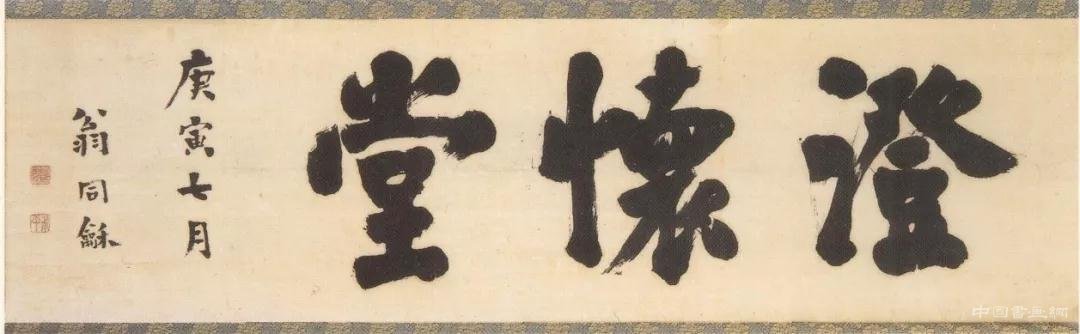 澄懷堂
庚寅七月
翁同龢
中国書画網